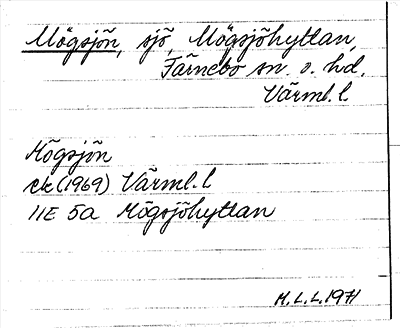 Mögsjön, sjö, Mögsjöhyttan,
Färnebo sn. o. hd.
Värml. l.
Mögsjön
ek (1969) Värml. l
11E 5a Mögsjöhyttan
M.L.L. 1971